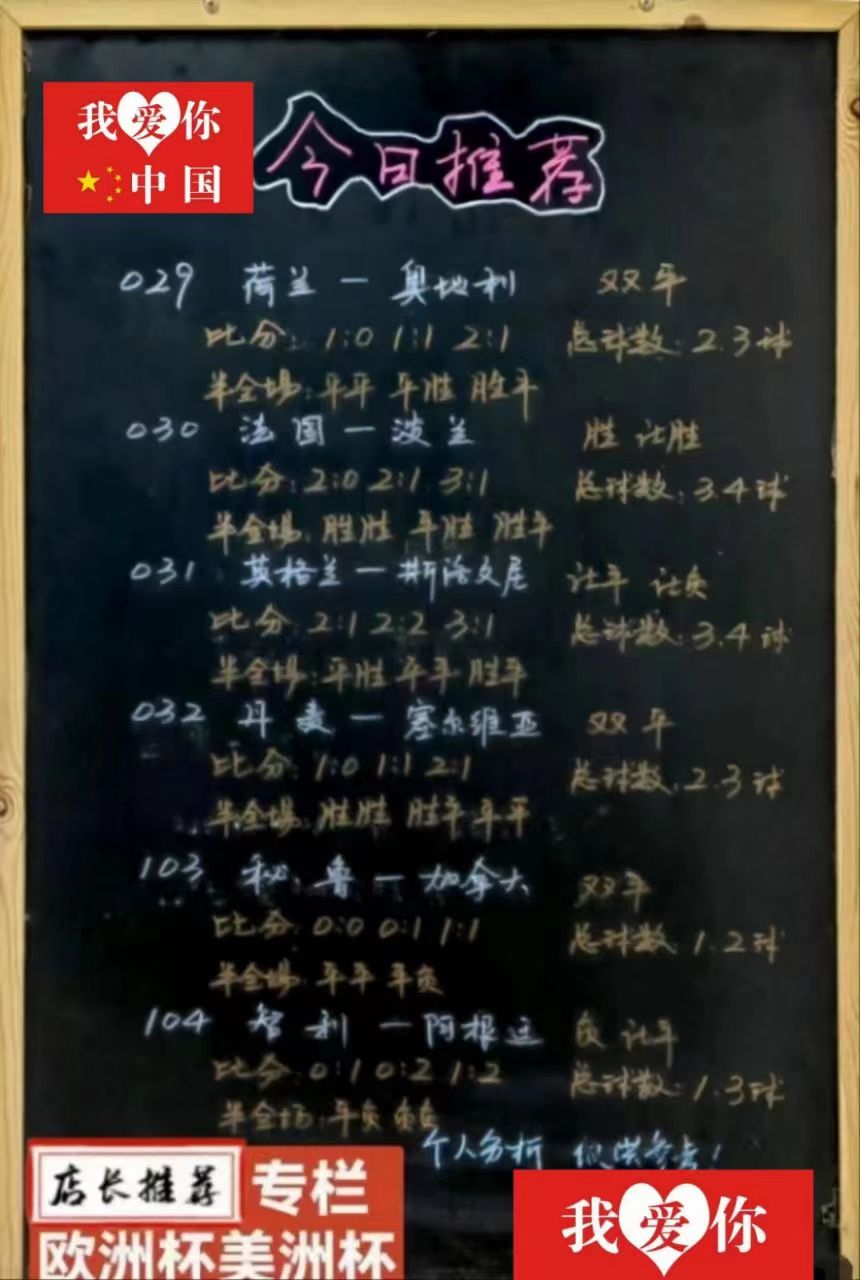 我爱你
中国
今日推荐
029 荷兰 — 奥地利 双平
比分: 1:0 1:1 2:1 总球数: 2.3球
半全場: 平平 平胜 胜平
030 法国 — 波兰 胜 让胜
比分: 2:0 2:1 3:1 总球数: 3.4球
半全場: 胜胜 平胜 胜平
031 英格兰 — 斯洛文尼 让平 让负
比分: 2:1 2:2 3:1 总球数: 3.4球
半全場: 平胜 平平 胜平
032 丹麦 — 塞尔维亚 双平
比分: 1:0 1:1 2:1 总球数: 2.3球
半全場: 胜胜 胜平 平平
103 秘鲁 — 加拿大 双平
比分: 0:0 0:1 1:1 总球数: 1.2球
半全場: 平平 平负
104 智利 — 阿根廷 负 让平
比分: 0:1 0:2 1:2 总球数: 1.3球
半全场: 平负 负负
个人分析 仅供参考!
店长推荐 专栏
欧洲杯美洲杯
我爱你